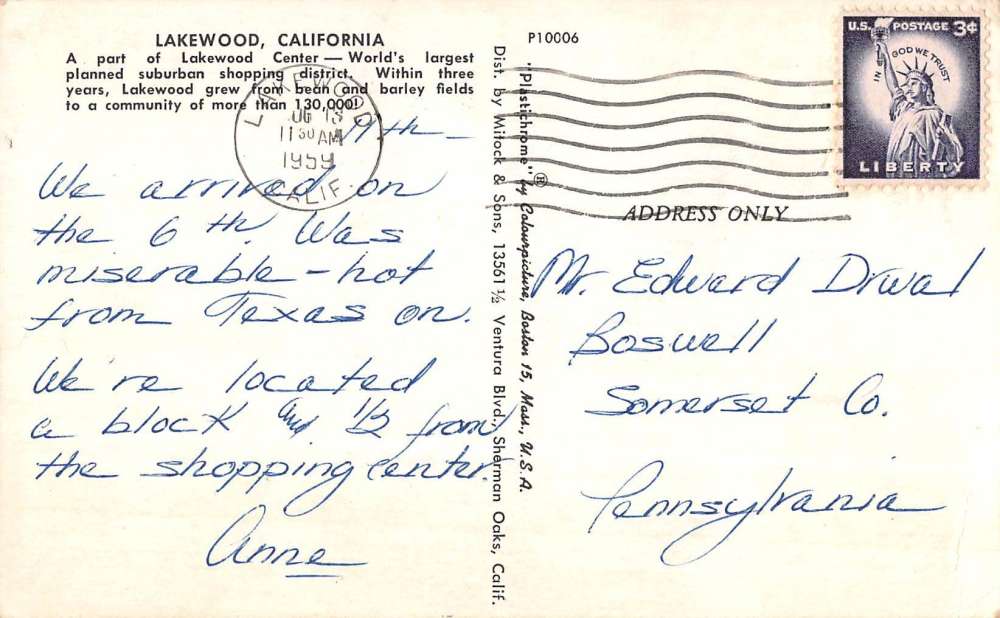 LAKEWOOD, CALIFORNIA
A part of Lakewood Center — World's largest
planned suburban shopping district. Within three
years, Lakewood grew from bean and barley fields
to a community of more than 130,000!
LAKEWOOD
11 30 AM
1959
CALIF.
We arrived on
the 6th. Was
miserable - hot
from Texas on.
We're located
a block and 1/2 from
the shopping center.
Anne
Dist. by Mitock & Sons, 13561 ½ Ventura Blvd., Sherman Oaks, Calif.
"Plastichrome" ® by Colourpicture, Boston 15, Mass., U.S.A.
P10006
U.S. POSTAGE 3¢
IN GOD WE TRUST
LIBERTY
ADDRESS ONLY
Mr. Edward Drwal
Boswell
Somerset Co.
Pennsylvania